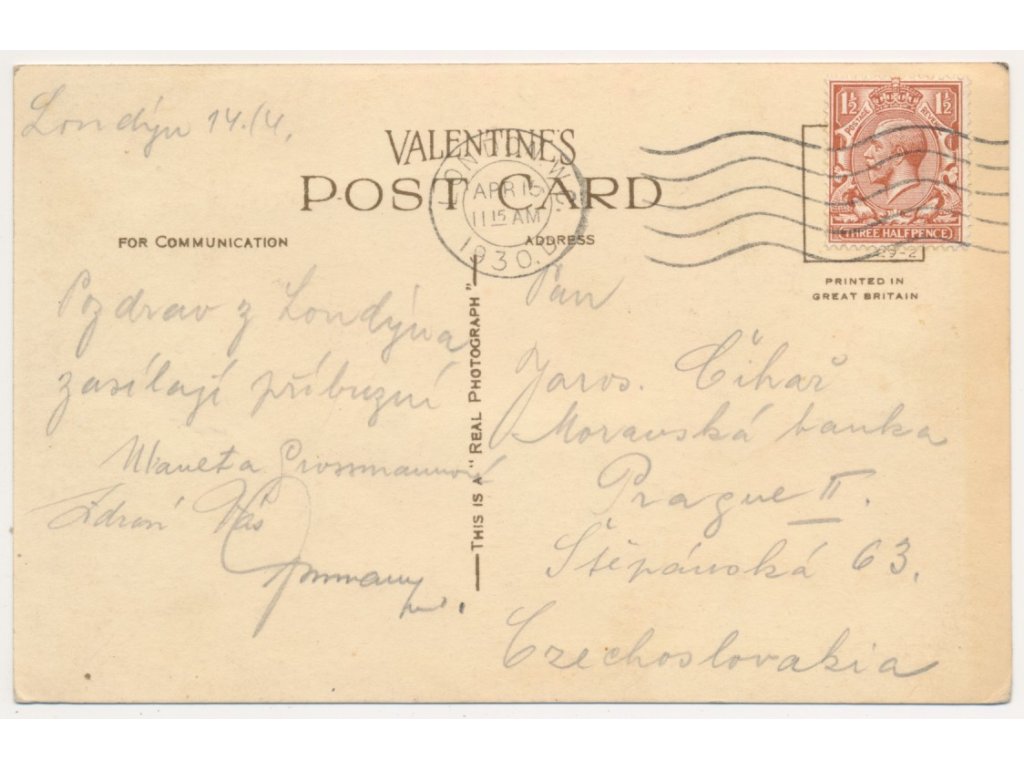 Londýn 14./4.
VALENTINE'S
POST CARD
FOR COMMUNICATION
ADDRESS
LONDON
APR 15
11 15 AM
1930
1½ 1½
POSTAGE REVENUE
THREE HALFPENCE
29-2
PRINTED IN
GREAT BRITAIN
THIS IS A "REAL PHOTOGRAPH"
Pozdrav z Londýna
zasílají příbuzní
Grossmannová
Zdraví Vás
Pan
Jaros. Čihař
Moravská banka
Prague II.
Štěpánská 63.
Czechoslovakia